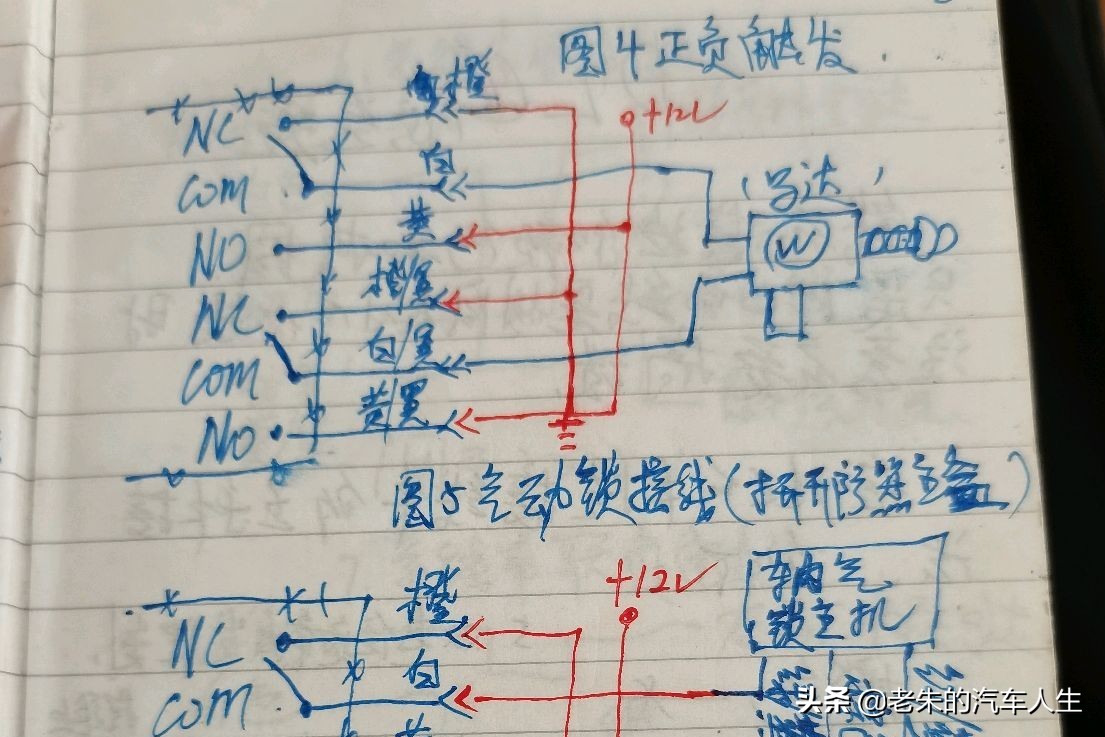 图4 正负触发
橙
+12V
NC
白
COM
马达
黄
NO
M
橙/黑
NC
白/黑
COM
黄黑
NO
图5 气动锁接线
+12V
橙
气
锁主机
NC
白
COM
头条 @老朱的汽车人生